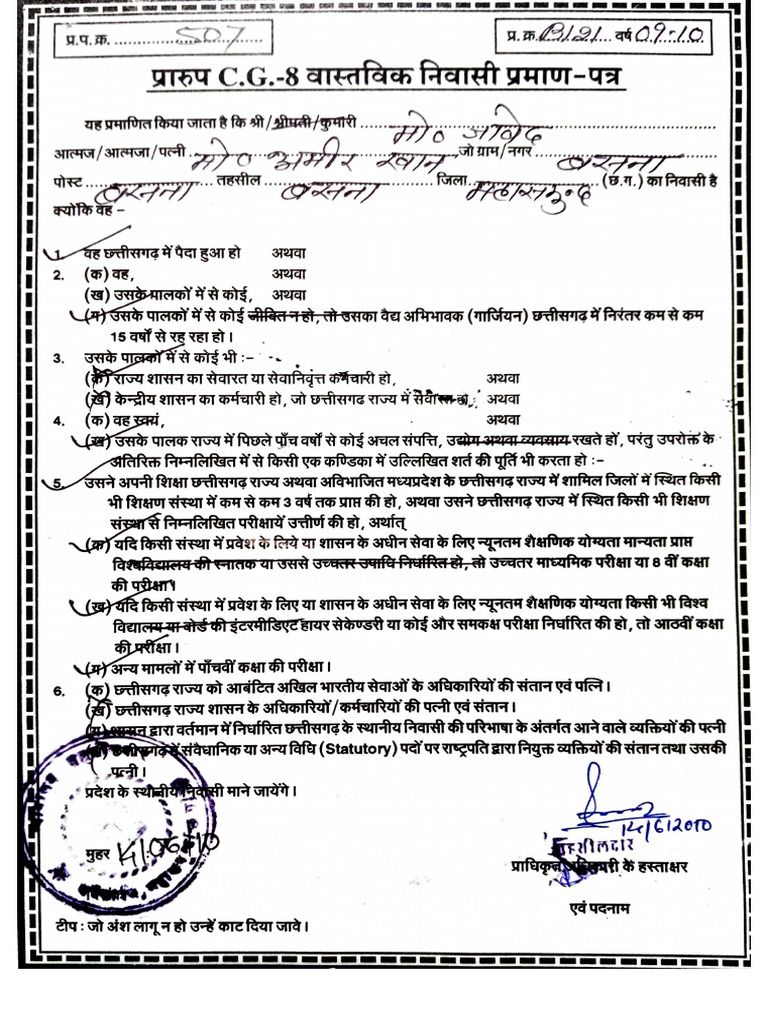 प्र.प.क्र. 507
प्र.क्र. B/121 वर्ष 09-10
प्रारुप C.G.-8 वास्तविक निवासी प्रमाण-पत्र
यह प्रमाणित किया जाता है कि श्री/श्रीमती/कुमारी मो० जावेद
आत्मज/आत्मजा/पत्नी मो० अमीर खान जो ग्राम/नगर बसना
पोस्ट बसना तहसील बसना जिला महासमुन्द (छ.ग.) का निवासी है
क्योंकि वह –
1. वह छत्तीसगढ़ में पैदा हुआ हो अथवा
2. (क) वह, अथवा
(ख) उसके पालकों में से कोई, अथवा
(ग) उसके पालकों में से कोई जीवित न हो, तो उसका वैद्य अभिभावक (गार्जियन) छत्तीसगढ़ में निरंतर कम से कम
15 वर्षो से रह रहा हो।
3. उसके पालकों में से कोई भी :-
(क) राज्य शासन का सेवारत या सेवानिवृत्त कर्मचारी हो, अथवा
(ख) केन्द्रीय शासन का कर्मचारी हो, जो छत्तीसगढ राज्य में सेवारत हो, अथवा
4. (क) वह स्वयं, अथवा
(ख) उसके पालक राज्य में पिछले पाँच वर्षो से कोई अचल संपत्ति, उद्योग अथवा व्यवसाय रखते हों, परंतु उपरोक्त के
अतिरिक्त निम्नलिखित में से किसी एक कण्डिका में उल्लिखित शर्त की पूर्ति भी करता हो :–
5. उसने अपनी शिक्षा छत्तीसगढ़ राज्य अथवा अविभाजित मध्यप्रदेश के छत्तीसगढ़ राज्य में शामिल जिलों में स्थित किसी
भी शिक्षण संस्था में कम से कम 3 वर्ष तक प्राप्त की हो, अथवा उसने छत्तीसगढ़ राज्य में स्थित किसी भी शिक्षण
संस्था से निम्नलिखित परीक्षायें उत्तीर्ण की हो, अर्थात्
(क) यदि किसी संस्था में प्रवेश के लिये या शासन के अधीन सेवा के लिए न्यूनतम शैक्षणिक योग्यता मान्यता प्राप्त
विश्वविद्यालय की स्नातक या उससे उच्चतर उपाधि निर्धारित हो, तो उच्चतर माध्यमिक परीक्षा या 8 वीं कक्षा
की परीक्षा।
(ख) यदि किसी संस्था में प्रवेश के लिए या शासन के अधीन सेवा के लिए न्यूनतम शैक्षणिक योग्यता किसी भी विश्व
विद्यालय या बोर्ड की इंटरमीडिएट हायर सेकेण्डरी या कोई और समकक्ष परीक्षा निर्धारित की हो, तो आठवीं कक्षा
की परीक्षा।
(ग) अन्य मामलों में पाँचवीं कक्षा की परीक्षा।
6. (क) छत्तीसगढ़ राज्य को आबंटित अखिल भारतीय सेवाओं के अधिकारियों की संतान एवं पत्नि।
(ख) छत्तीसगढ़ राज्य शासन के अधिकारियों/कर्मचारियों की पत्नी एवं संतान।
(ग) शासन द्वारा वर्तमान में निर्धारित छत्तीसगढ़ के स्थानीय निवासी की परिभाषा के अंतर्गत आने वाले व्यक्तियों की पत्नी
छत्तीसगढ़ में संवैधानिक या अन्य विधि (Statutory) पदों पर राष्ट्रपति द्वारा नियुक्त व्यक्तियों की संतान तथा उसकी
पत्नी।
प्रदेश के स्थानीय निवासी माने जायेंगे।
14/6/2010
तहसीलदार
मुहर 14/06/10
प्राधिकृत अधिकारी के हस्ताक्षर
एवं पदनाम
टीप : जो अंश लागू न हो उन्हें काट दिया जावे।